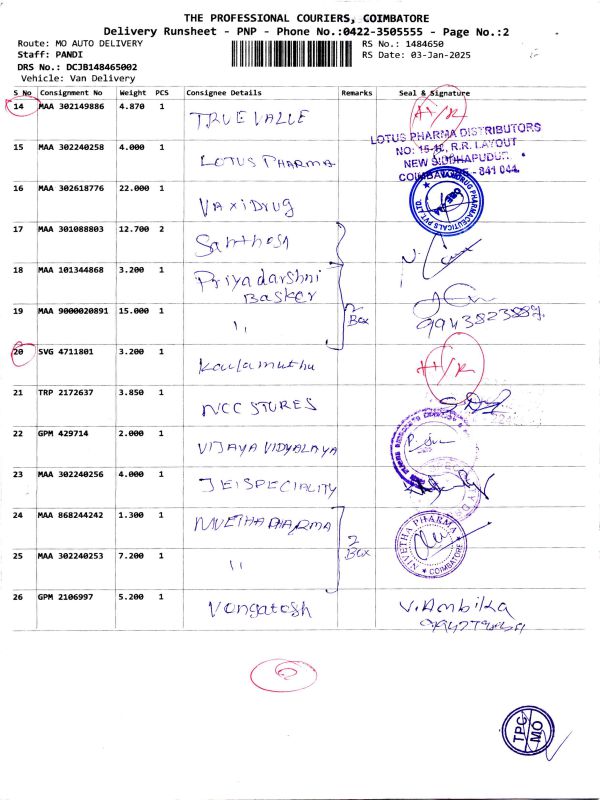 THE PROFESSIONAL COURIERS, COIMBATORE
Delivery Runsheet - PNP - Phone No.:0422-3505555 - Page No.:2
Route: MO AUTO DELIVERY
Staff: PANDI
DRS No.: DCJB148465002
Vehicle: Van Delivery
RS No.: 1484650
RS Date: 03-Jan-2025
S No Consignment No Weight PCS Consignee Details Remarks Seal & Signature
14 MAA 302149886 4.870 1 TRUEVALLE H/R
LOTUS PHARMA DISTRIBUTORS
NO: 15-1E, R.R. LAYOUT
NEW SIDDHAPUDUR
COIMBATORE - 641 044.
15 MAA 302240258 4.000 1 LOTUS PHARMA
16 MAA 302618776 22.000 1 VAXIDRUG
VAXIDRUG PHARMACEUTICALS PVT.LTD.
17 MAA 301088803 12.700 2 Santhosh
18 MAA 101344868 3.200 1 Priyadarshni
Basker
19 MAA 9000020891 15.000 1 " 2
Box
20 SVG 4711801 3.200 1 Kaulamuthu H/R
21 TRP 2172637 3.850 1 NCC STORES
22 GPM 429714 2.000 1 VIJAYA VIDYALAYA
23 MAA 302240256 4.000 1 JEISPECIALITY
24 MAA 868244242 1.300 1 NIVETHA PHARMA 2
Box
NIVETHA PHARMA
COIMBATORE
25 MAA 302240253 7.200 1 "
26 GPM 2106997 5.200 1 Vengatesh V. Ambika
TPC
MO